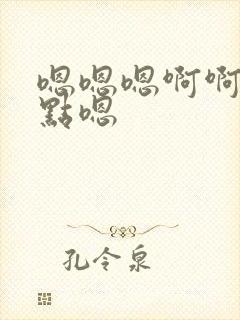 嗯嗯嗯啊啊
點嗯
孔令泉